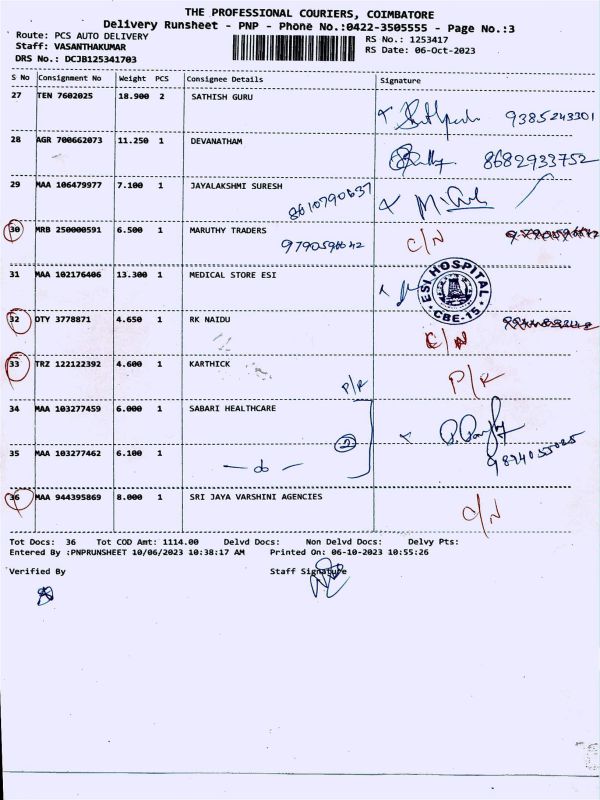 THE PROFESSIONAL COURIERS, COIMBATORE
Delivery Runsheet - PNP - Phone No.:0422-3505555 - Page No.:3
Route: PCS AUTO DELIVERY
RS No.: 1253417
Staff: VASANTHAKUMAR
RS Date: 06-Oct-2023
DRS No.: DCJB125341703
S No Consignment No Weight PCS Consignee Details Signature
27 TEN 7602025 18.900 2 SATHISH GURU
9385243301
28 AGR 700662073 11.250 1 DEVANATHAM
8682933752
29 MAA 106479977 7.100 1 JAYALAKSHMI SURESH
8610790637
30 MRB 250000591 6.500 1 MARUTHY TRADERS
9790596642 C/N
31 MAA 102176406 13.300 1 MEDICAL STORE ESI
ESI HOSPITAL
CBE-15
32 DTY 3778871 4.650 1 RK NAIDU
C/N
33 TRZ 122122392 4.600 1 KARTHICK
P/R P/R
34 MAA 103277459 6.000 1 SABARI HEALTHCARE
2
35 MAA 103277462 6.100 1
— do —
9874055025
36 MAA 944395869 8.000 1 SRI JAYA VARSHINI AGENCIES
C/N
Tot Docs: 36 Tot COD Amt: 1114.00 Delvd Docs: Non Delvd Docs: Delvy Pts:
Entered By :PNPRUNSHEET 10/06/2023 10:38:17 AM Printed On: 06-10-2023 10:55:26
Verified By Staff Signature